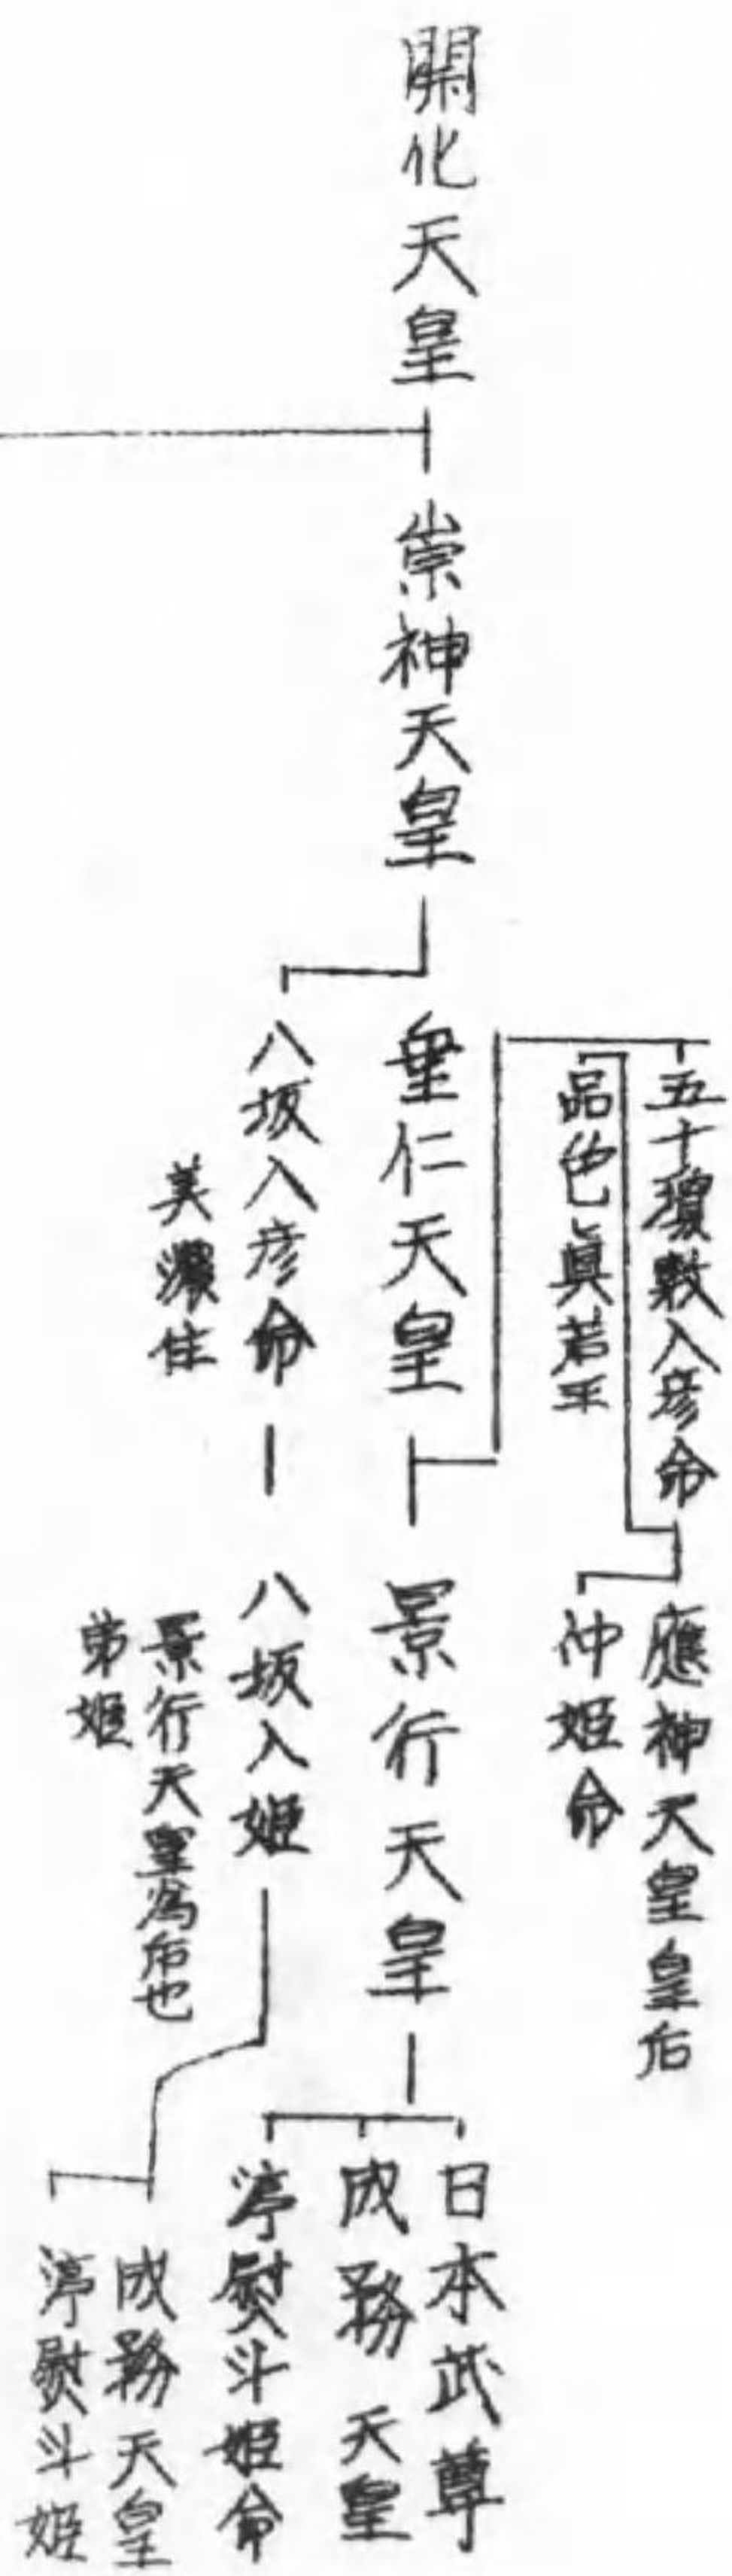 開化天皇
崇神天皇
五十瓊敷入彦命
品色真若王
垂仁天皇
八坂入彦命
美濃住
應神天皇皇后
仲姫命
景行天皇
八坂入姫
景行天皇為后也
弟姫
日本武尊
成務天皇
渟熨斗姫命
成務天皇
渟熨斗姫